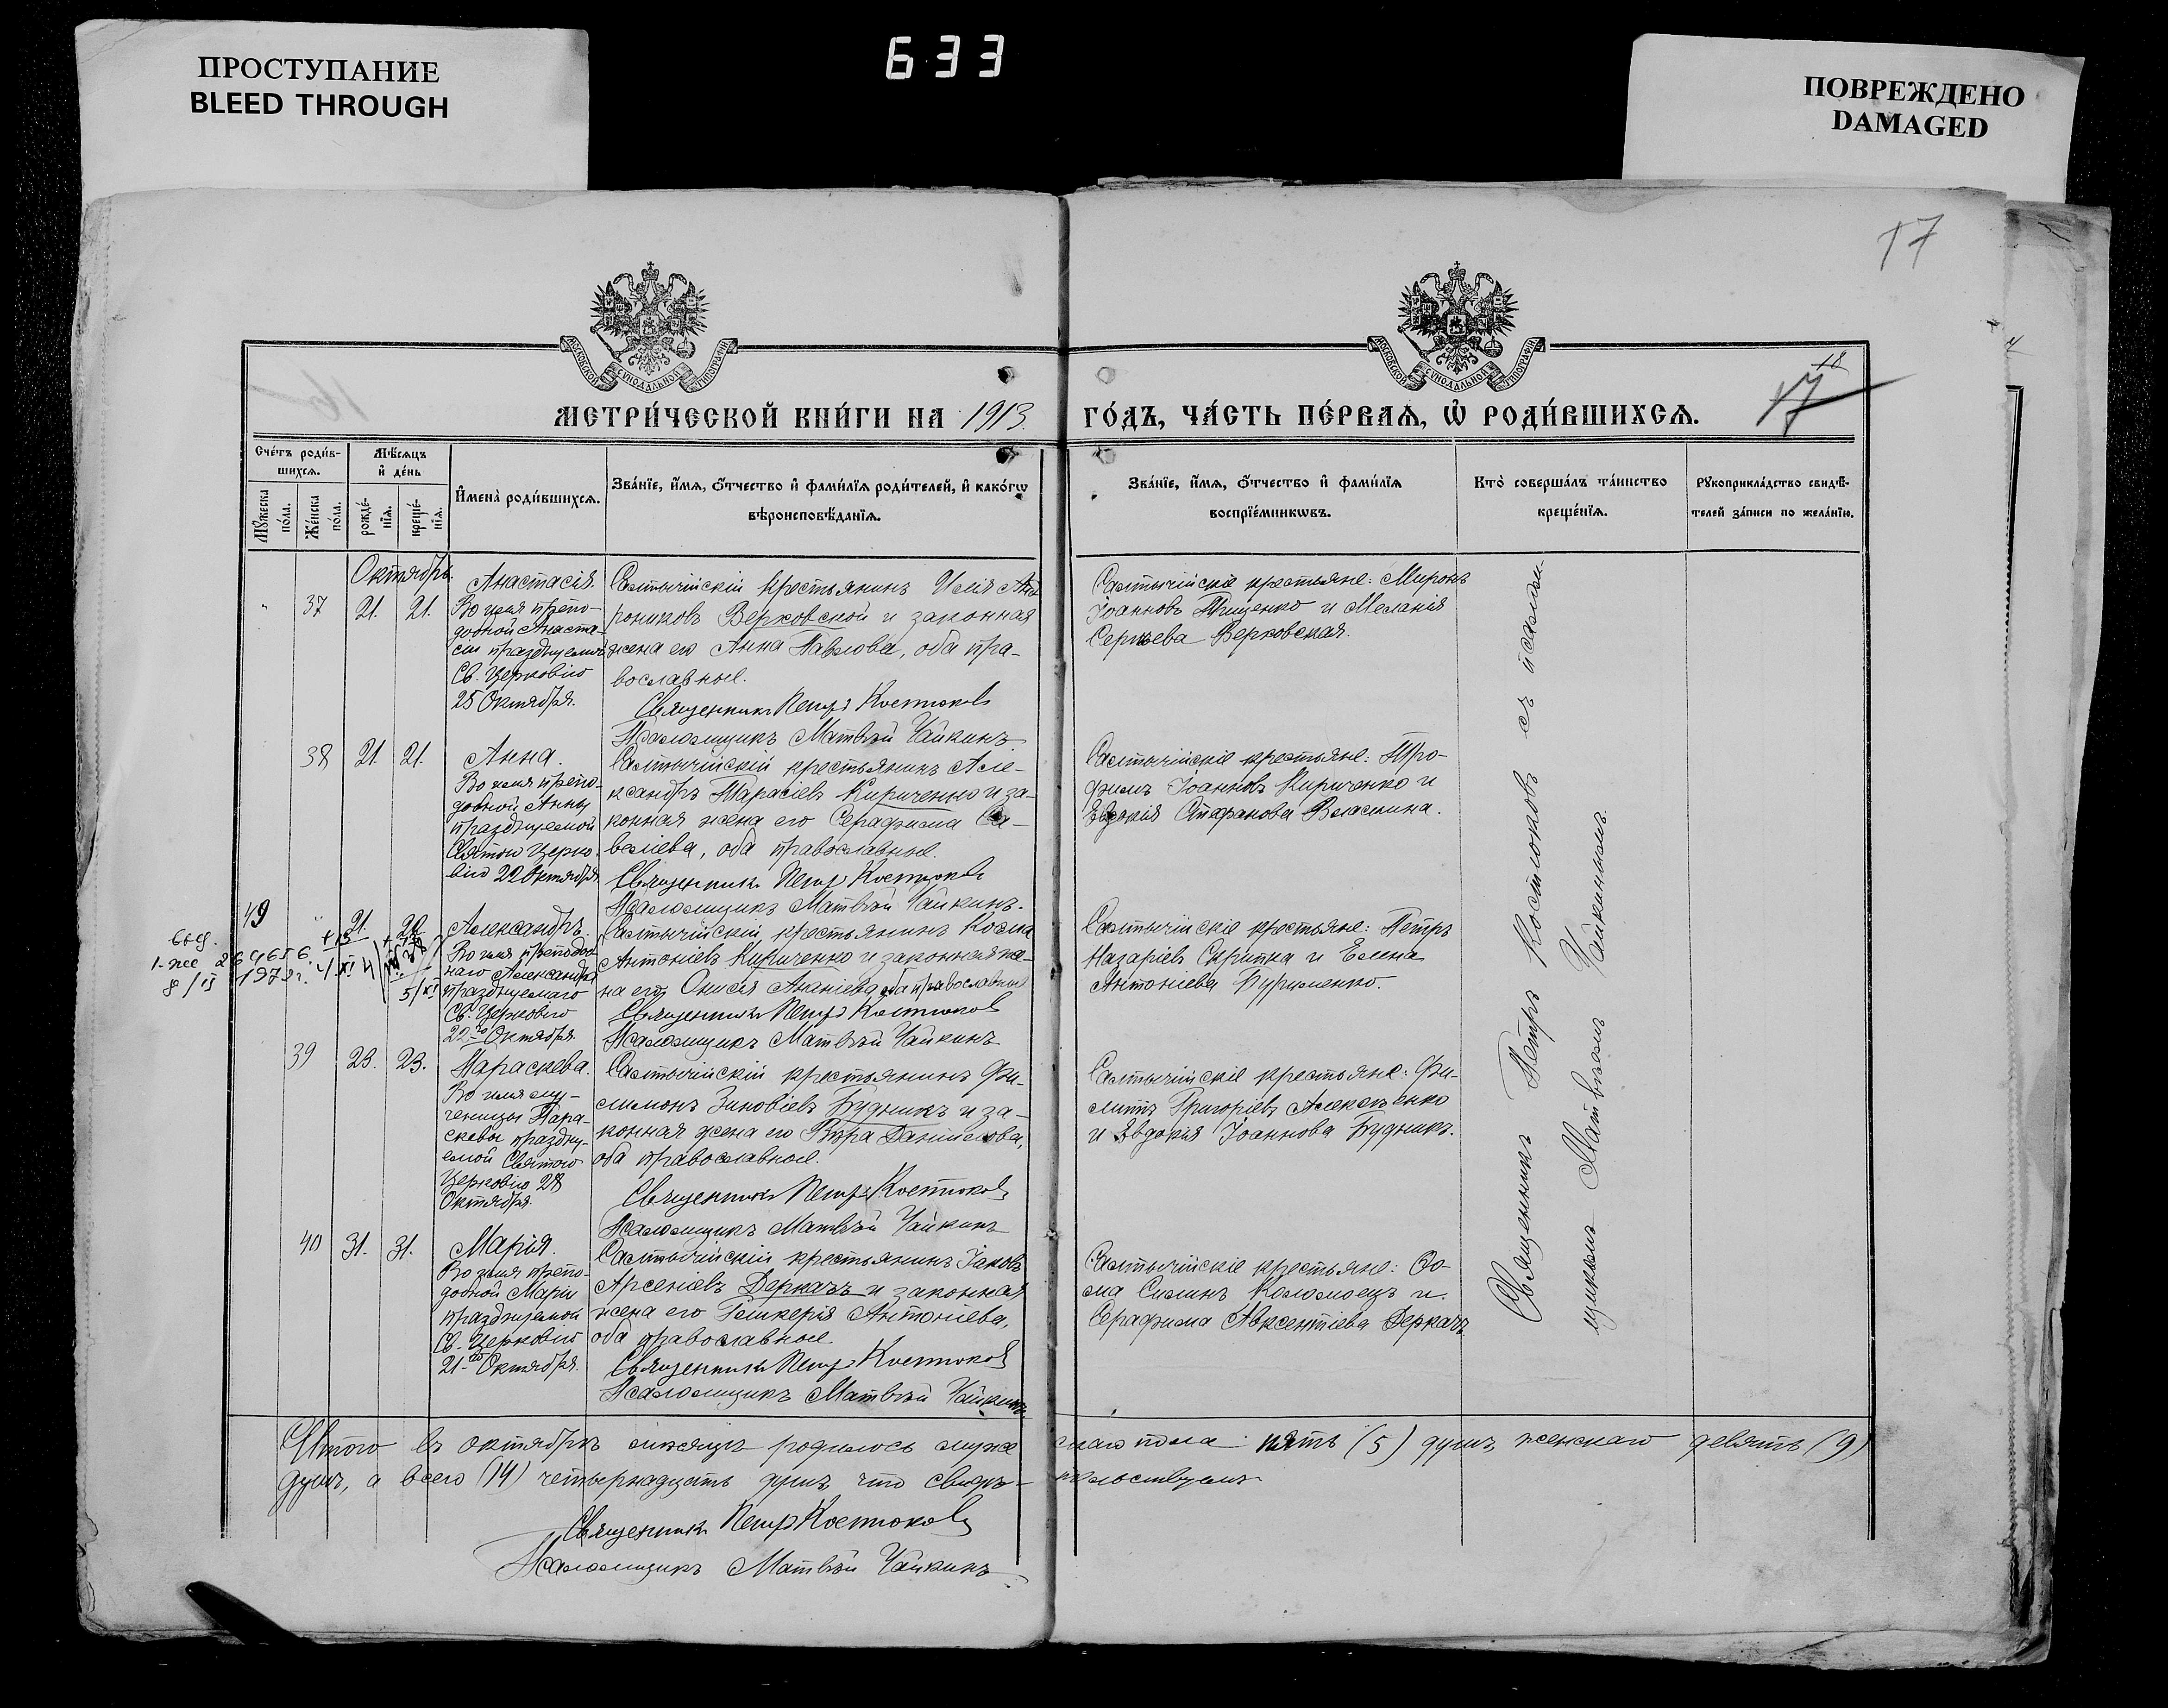 ПРОСТУПАНИЕ
BLEED THROUGH
633
ПОВРЕЖДЕНО
DAMAGED
17
МОСКОВСКОЙ СѴНОДАЛЬНОЙ ТИПОГРАФІИ
МОСКОВСКОЙ СѴНОДАЛЬНОЙ ТИПОГРАФІИ
18
17
МЕТРИ́ЧЕСКОЙ КНИ́ГИ НА 1913 ГО́ДЪ, ЧА́СТЬ ПЕ́РВАѦ, Ѡ҆ РОДИ́ВШИХСѦ.
Сче́тъ роди́в-
шихсѧ.
Мѣ́сѧцъ
и҆ де́нь
Мꙋ́жеска
по́ла.
Же́нска
по́ла.
рожде́-
нїѧ.
креще́-
нїѧ.
И҆мена̀ роди́вшихсѧ.
Зва́нїе, и҆́мѧ, ѻ҆́тчество и҆ фами́лїѧ роди́телей, и҆ како́гѡ
вѣроисповѣ́данїѧ.
Зва́нїе, и҆́мѧ, ѻ҆́тчество и҆ фами́лїѧ
воспрїе́мникѡвъ.
Кто̀ соверша́лъ та́инство
креще́нїѧ.
Рꙋкоприкла́дство свидѣ́-
телей за́писи по жела́нїю.
Октябрь.
37 21. 21.
Анастасія.
Во имя препо-
добной Анаста-
сіи празднуемой
Св. Церковію
25 Октября.
Салтычійскій крестьянинъ Илія Анд
рониковъ Верковской и законная
жена его Анна Павлова, оба пра-
вославные.
Священникъ Петръ Костюковъ
Псаломщикъ Матвѣй Чайкинъ.
Салтычійскіе крестьяне: Миронъ
Іоанновъ Тищенко и Меланія
Сергіева Верковская.
38 21. 21.
Анна.
Во имя препо-
добной Анны
празднуемой
Святою Церко-
вію 22 Октября
Салтычійскій крестьянинъ Але-
ксандръ Тарасіевъ Кириченко и за-
конная жена его Серафима Са-
веліева, оба православные.
Священникъ Петръ Костюковъ
Псаломщикъ Матвѣй Чайкинъ.
Салтычійскіе крестьяне: Тро-
фимъ Іоанновъ Кириченко и
Евдокія Стефанова Власкина.
49 21. 22
264656
8/II 1973 г.
5/XI
Александръ.
Во имя преподоб-
наго Александра
празднуемаго
Св. Церковію
22го Октября
Салтычійскій крестьянинъ Косма
Антоніевъ Кириченко и законная же-
на его Онисія Ананіева, оба православные
Священникъ Петръ Костюковъ
Псаломщикъ Матвѣй Чайкинъ
Салтычійскіе крестьяне: Петръ
Назаріевъ Скрипка и Елена
Антоніева Бурименко.
39 23. 23.
Параскева.
Во имя му-
ченицы Пара-
скевы праздну-
емой Святою
Церковію 28
Октября.
Салтычійскій крестьянинъ Фи-
лимонъ Зиновіевъ Будникъ и за-
конная жена его Вѣра Даніилова,
оба православные.
Священникъ Петръ Костюковъ
Псаломщикъ Матвѣй Чайкинъ
Салтычійскіе крестьяне: Фи-
липпъ Григоріевъ Алексѣенко
и Евдокія Іоаннова Будникъ.
40 31. 31.
Марія.
Во имя препо-
добной Маріи
празднуемой
Св. Церковію
21-го Октября.
Салтычійскій крестьянинъ Іаковъ
Арсеніевъ Деркачъ и законная
жена его Гликерія Антоніева,
оба православные.
Священникъ Петръ Костюковъ
Псаломщикъ Матвѣй Чайкинъ
Салтычійскіе крестьяне: Ѳо-
ма Силинъ Коломоецъ и
Серафима Авксентіева Деркачъ
Священникъ Петръ Костюковъ съ псалом-
щикомъ Матвѣемъ Чайкинымъ.
Итого въ октябрѣ мѣсяцѣ родилось муже скаго пола пять (5) душъ, женскаго девять (9)
душъ, а всего (14) четырнадцать душъ, что свидѣ- тельствуемъ
Священникъ Петръ Костюковъ
Псаломщикъ Матвѣй Чайкинъ